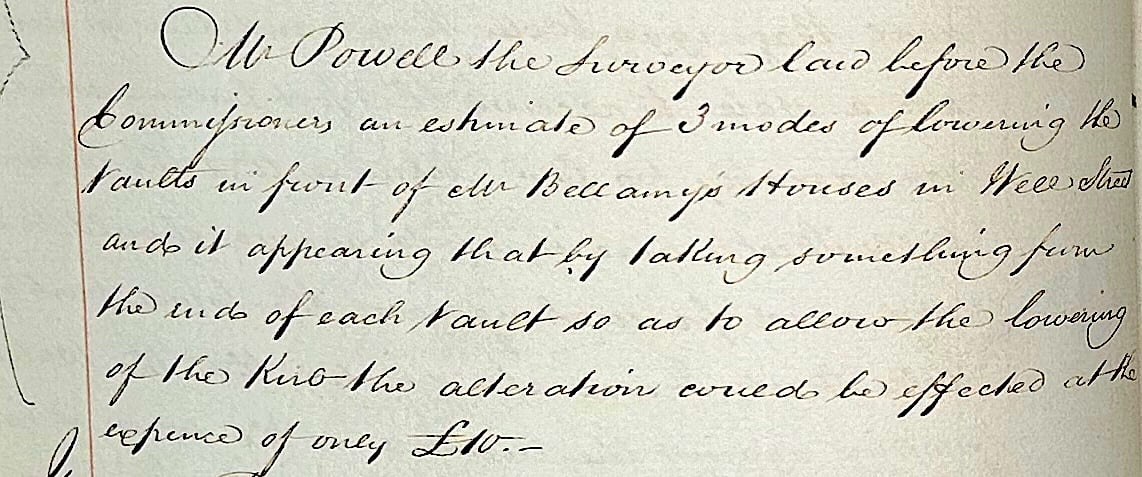 Mr Powell the Surveyor laid before the
Commissioners an estimate of 3 modes of lowering the
Vaults in front of Mr Bellamy's Houses in Well Street
and it appearing that by taking something from
the end of each Vault so as to allow the lowering
of the Kirb the alteration could be effected at the
expence of only £10.-